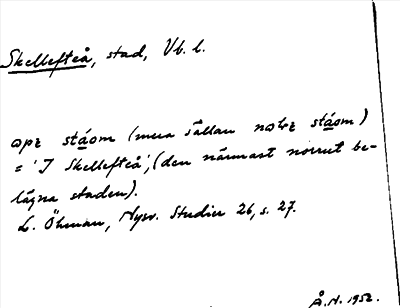 Skellefteå, stad, Vb. l.
stáom (mera sällan stáom)
= 'I Skellefteå', (den närmast norrut be-
lägna staden).
L. Öhman, Nysv. Studier 26, s. 27.
Å.N. 1952.